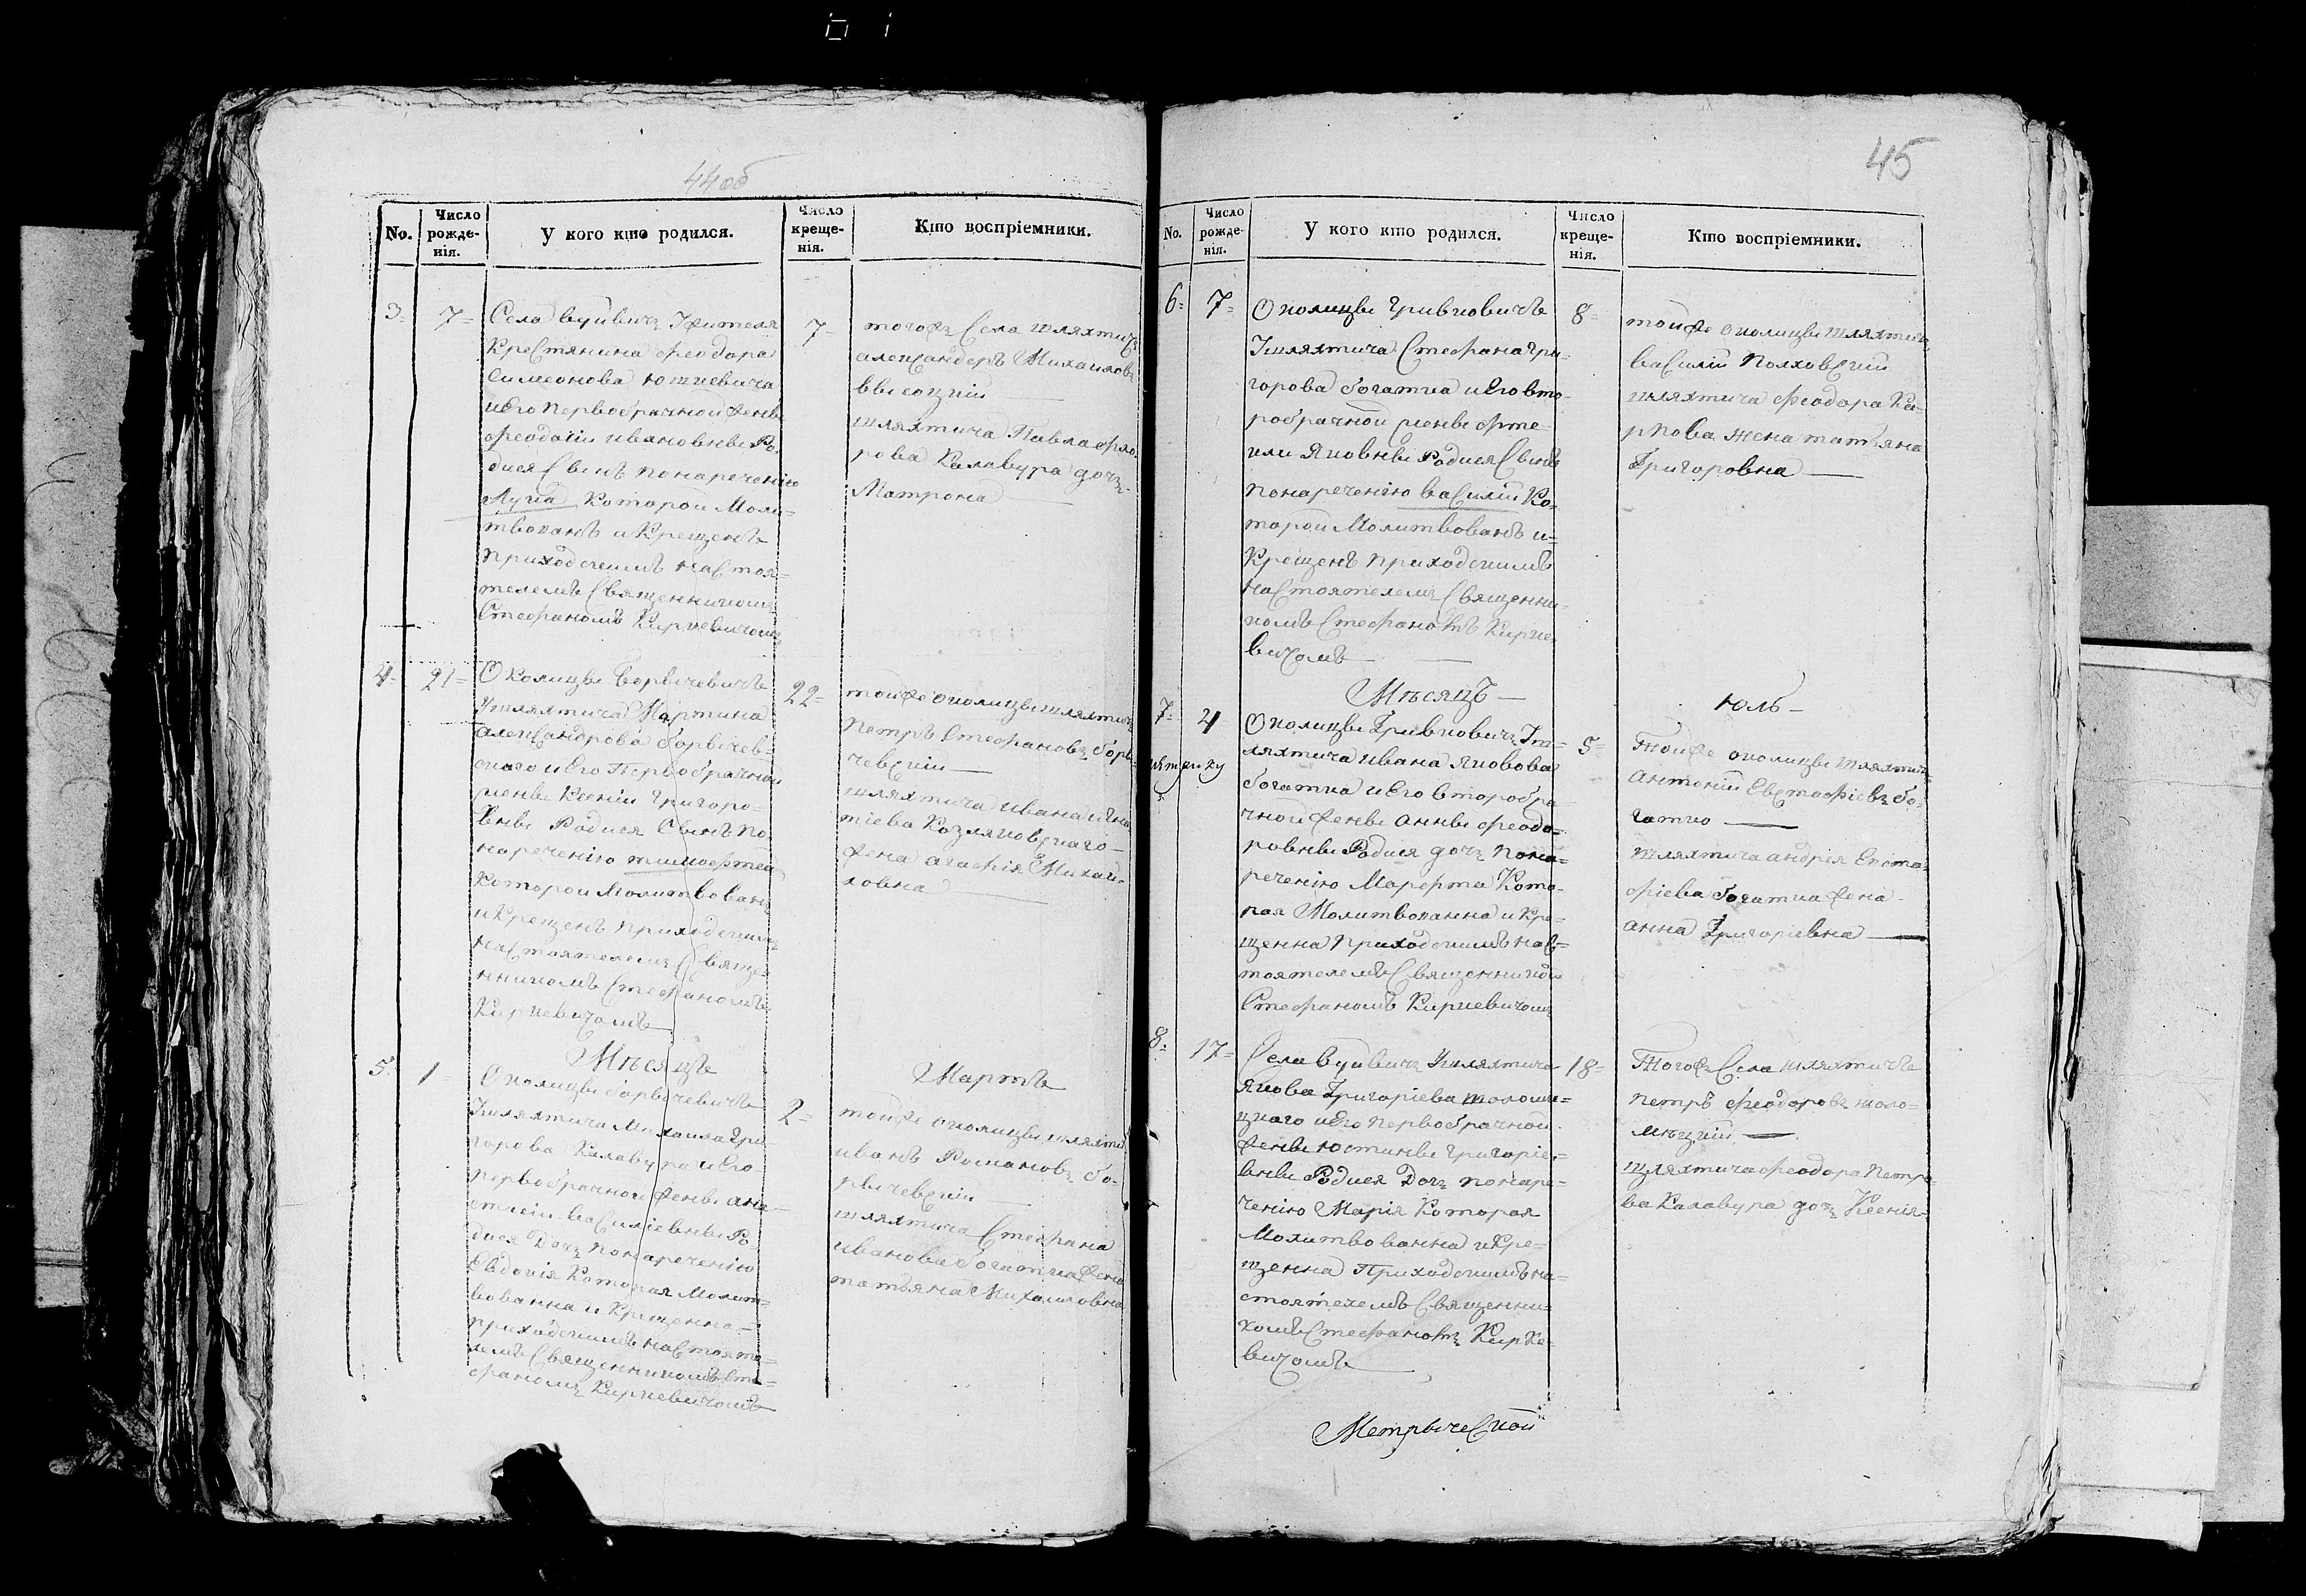 44об
No.
Число рожде-нія.
У кого кто родился.
Число креще-нія.
Кто воспріемники.
3=
7=
Села вуйвичъ Ужителя
Крестянина Феодора
Симеонова
и его первобрачной женѣ
Феодосіи ивановнѣ Ро-
дися Сынъ понареченію
Лука Которой Моли-
твованъ и Крещенъ
приходскимъ насто-
телемъ Священникомъ
Стефаномъ Киркевичомъ
7=
тогожъ Села шляхтичъ
александеръ Михаиловъ
высоцкій
шляхтича Павла Фло-
рова Калавура дочъ
Матрона
4=
21=
Околицы Борычевичъ
Ушляхтича Мартина
александрова борычев-
скаго и его Первобрачной
женѣ Ксеніи григоро-
внѣ Родися Сынъ по
нареченію тимофтей
Которой Молитвованъ
и Крещенъ приходскимъ
настоятелемъ Свяще-
нникомъ Стефаномъ
Киркевичомъ
22=
тойже околицы шляхтичъ
Петръ Стефановъ боры-
чевскій
шляхтича ивана игна
тіева Козляковскаго
жена агафія Михай-
ловна
Мѣсяцъ
Мартъ
5.
1=
Околицы борычевичъ
Ушляхтича Михаила гри-
горова Калавура и его
первобрачной женѣ ана-
стасіи василіевнѣ Ро-
дися Дочъ понареченію
Евдокія Которая Молит-
вованна и Крещенна
приходскимъ настояте-
лемъ Священникомъ Сте-
фаномъ Киркевичомъ
2=
тойже околицы шляхти
иванъ Романовъ бо-
рычевскій
шляхтича Стефана
иванова богатка жена
татьяна Михаиловна
45
No.
Число рожде-нія.
У кого кто родился.
Число креще-нія.
Кто воспріемники.
6=
7=
Околицы Гривковичъ
Ушляхтича Стефана гри-
горова богатка и его вто-
робрачной женѣ
Яковнѣ Родися Сынъ
понареченію василій Ко-
торой Молитвованъ и=
Крещенъ приходскимъ
настоятелемъ Священни
комъ Стефаномъ Кирке-
вичомъ
8=
тойже околицы шляхтичъ
василій Полховскій
шляхтича Феодора Ка-
рпова жена татьяна
Григоровна
Мѣсяцъ
юль
7=
4
Околицы Гривковичъ Уш-
ляхтича ивана Яковова
богатка и его второбра-
чной женѣ аннѣ Феодо-
ровнѣ Родися дочъ пона-
реченію Марфта Кото-
рая Молитвованна и Кре-
щенна приходскимъ нас-
тоятелемъ Священникомъ
Стефаномъ Киркевичомъ
5=
Тойже околицы шляхтичъ
антоній Евстафіевъ бо-
гатко
шляхтича андрея Евста-
фіева богатка жена
анна Григоріевна
8=
17=
Села вуйвичъ Ушляхтича
Якова Григоріева толоми-
цкаго и его первобрачной
женѣ юстинѣ григоріе-
внѣ Родися Дочъ понаре-
ченію Марія Которая
Молитвованна и Кре-
щенна Приходскимъ на-
стоятелемъ Священни-
комъ Стефаномъ Кирке-
вичомъ
18=
Тогожъ Села шляхтичъ
петръ Феодоровъ
шляхтича Феодора Петро-
ва Калавура дочъ Ксенія
Метрической